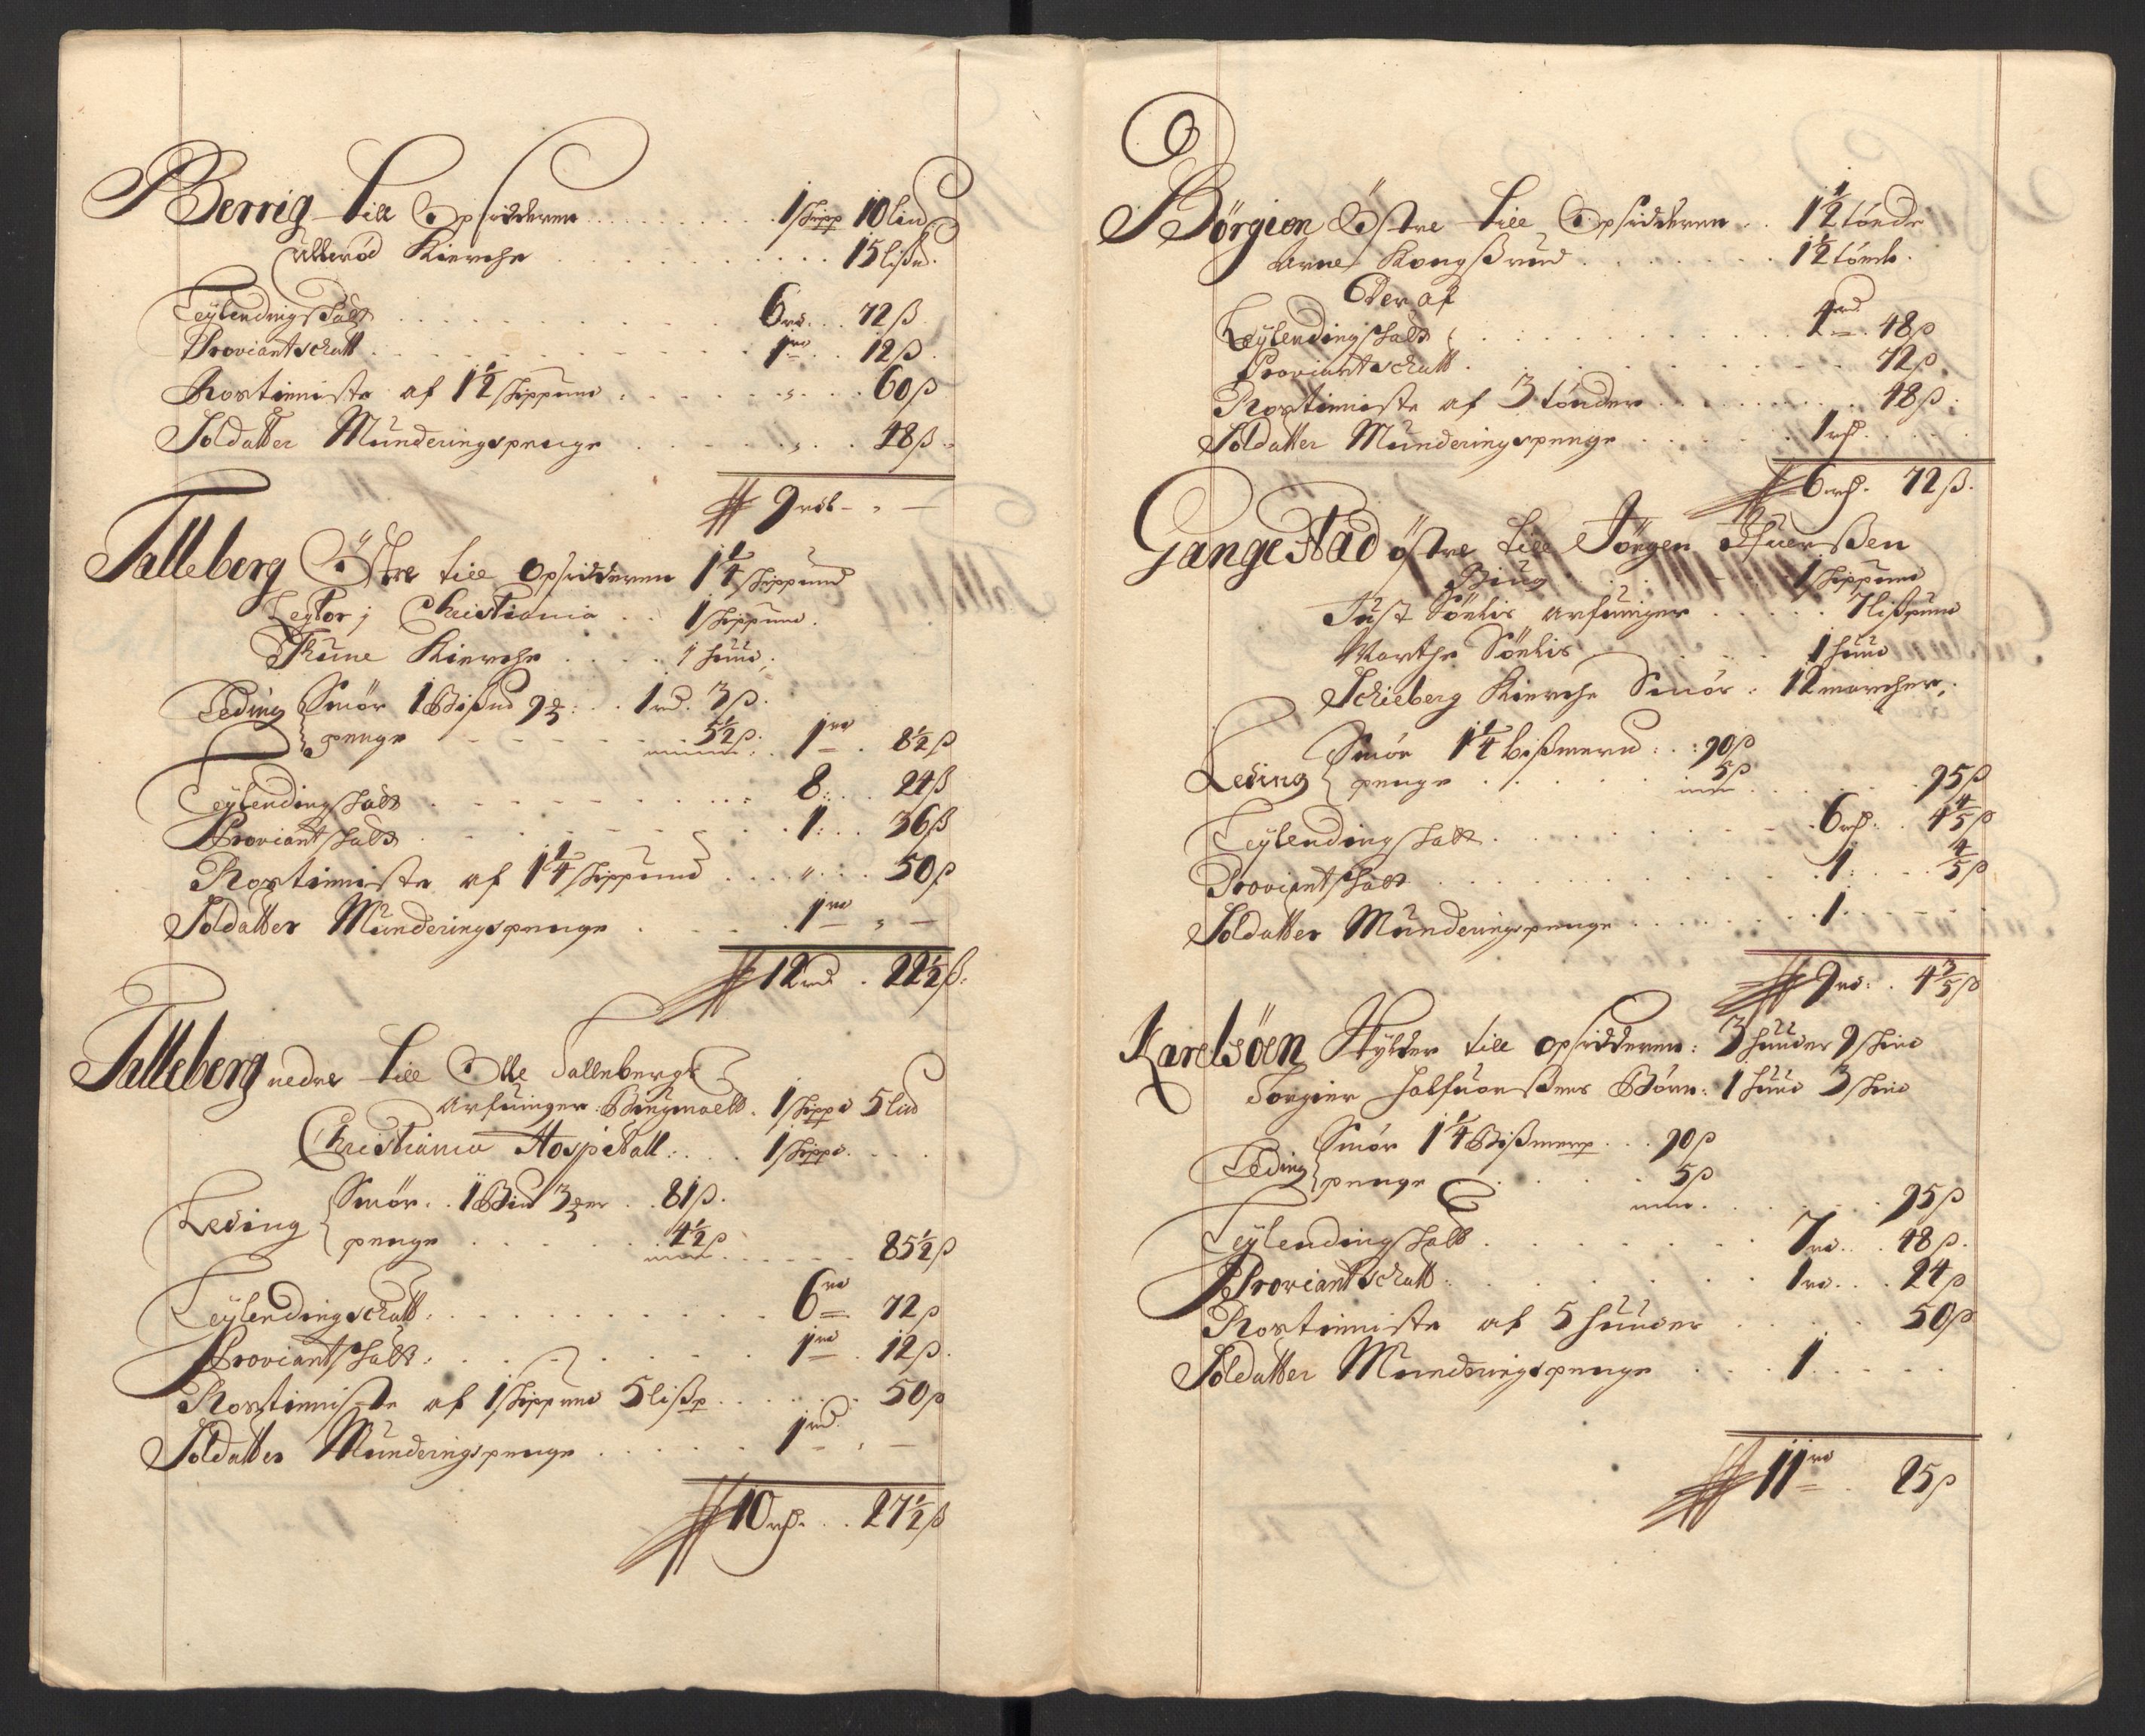 Berrig till Opsidderen . . . 1 skipp 10 lißd
Ullerød Kierche . . . 15 lißd.
Leylendingskatt . . . 6 rd. 72 ß
Proviantschatt . . . 1 rd 12 ß.
Rostienniste af 1½ skippund . . . 60 ß
Soldatter Münderingspenge . . . 48 ß.
9 rdl - -
Talleberg Östre till Opsidderen 1¼ skippund
Lector j Christiania . . 1 skippund.
Thune Kierche . . . . 1 huud.
Leding Smör 1 Bißmd 9 . . 1 rd. 3 ß.
penge . . . 5½ ß. 1 rd . 8½ ß
Leylendingskatt . . . 8: . . 24 ß
Proviantskatt . . . 1: . . 36 ß
Rostienniste af 1¼ skippund . . . 50 ß
Soldatter Münderingspenge . . . 1 rd
12 rd. 22½ ß.
Talleberg nedre till Olle Tallebergs
arfuinger: Bÿgmaell. 1 skipp 5 lißd
Christiania Hospitall: . . . 1 skipp.
Leding Smör. . 1 Bißd 3 . . 81 ß.
penge . . . 4½ ß . . . 85½ ß
Leylendingschatt: . . . 6 rd 72 ß
Proviantskatt: . . . 1 rd . 12 ß.
Rostienniste af 1 skippund 5 lißp . . . 50 ß
Soldatter Münderingspenge . . . 1 rd.
10 rd. . . 27½ ß
Börgien Östre till Opsidderen . . 1½ tönde
Arne Kongßrud . . . 1½ tönde.
Der af
Leylendingskatt . . . 4 rd 48 ß
Proviantschatt . . . 72 ß.
Rostienniste af 3 tönder . . . 48 ß.
Soldatter Münderingspenge . . . 1 rd.
6 rd. 72 ß.
Gangestad östre till Jörgen
1 skippund
Just arfuinger . . . 7 lißpund
Marthe . . . 1 huud
Schieberg Kierche Smör . 12 marcher.
Leding Smör 1¼ bißmerd: . 90 ß
penge . . . 5 ß . . . 95 ß
Leylendingskatt . . . 6 rd: . 4⅘ ß
Proviantskatt . . . 1: . . ⅘ ß
Soldatter Münderingspenge . . . 1
9 rd: . 4⅗ ß
Karelsöen Skylder till opsidderen: 3 huuder 9 skind
Torgier Halfuorßens Börn: 1 huud 3 skind
Leding Smör 1¼ Bißmerp . . . 90 ß
penge . . . 5 ß . . . 95 ß
Leylendingskatt . . . 7 rd. . 48 ß.
Proviantschatt: . . . 1 rd. . . 24 ß
Rostienniste af 5 huuder . . . 50 ß
Soldatter Münderingspenge . . . 1
11 rd . 25 ß